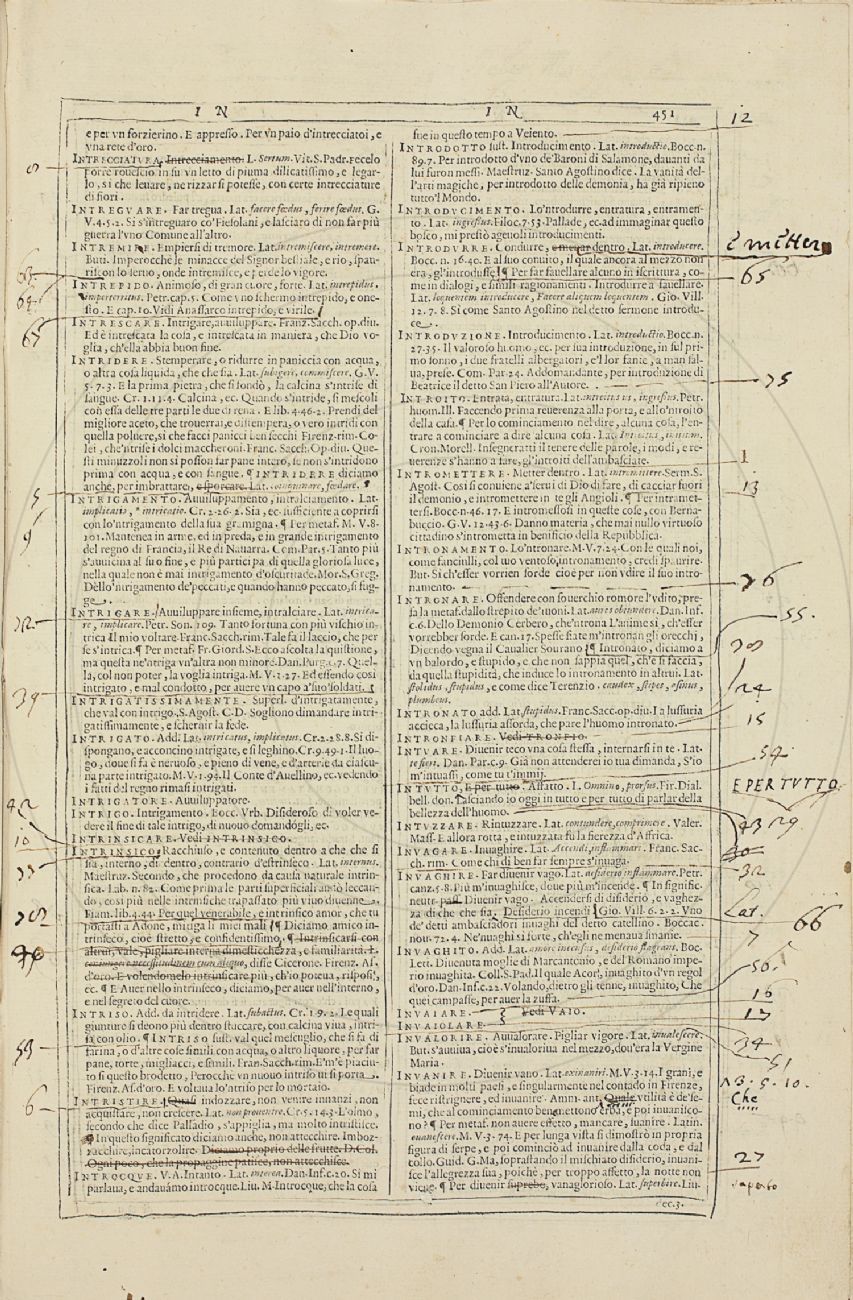 I N
I N
451
e per vn forzierino. E appresso. Per vn paio d'intrecciatoi, e
vna rete d'oro.
INTRECCIATVRA. Intrecciamento. L. Sertum. Vit. S. Padr. ecelo
forte rouescio in su vn letto di piuma dilicatissimo, e legar-
lo, si che leuare, ne rizzar si potesse, con certe intrecciature
di fiori.
INTREGVARE. Far tregua. Lat. facere fœdus, ferire fœdus. G.
V. 4. 5. 2. Si s'intreguaro co'Fiesolani, e lasciaro di non far più
guerra l'vno Comune all'altro.
INTREMIRE. Empiersi di tremore. Lat. intremiscere, intremere.
Buti. Imperocchè le minacce del Signor bestiale, e rio, spau-
riscon lo seruo, onde intremisce, e perde lo vigore.
INTREPIDO. Animoso, di gran cuore, forte. Lat. intrepidus,
imperterritus. Petr. cap. 5. Come vno schermo intrepido, e one-
sto. E cap. 10. Vidi Anassarco intrepido, e virile.
INTRESCARE. Intrigare, auuiluppare. Franz. Sacch. op. diu.
Ed è intrescata la cosa, e intrescata in maniera, che Dio vo-
glia, ch'ella abbia buon fine.
INTRIDERE. Stemperare, o ridurre in paniccia con acqua,
o altra cosa liquida, che che sia. Lat. subigere, commiscere. G. V.
5. 7. 3. E la prima pietra, che si fondò, la calcina s'intrise di
sangue. Cr. 1. 11. 4. Calcina, ec. Quando s'intride, si mescoli
con essa delle tre parti le due di rena. E lib. 4. 46. 2. Prendi del
migliore aceto, che trouerrai, e distempera, o vero intridi con
quella poluere, si che facci panicci ben secchi Firenz. rim. Co-
lei, che'ntrise i dolci maccheroni. Franc. Sacch. Op. diu. Que-
sti minuzzoli non si posson far pane intero, se non s'intridono
prima con acqua, e con sangue. ¶ INTRIDERE diciamo
anche, per imbrattare, e sporcare. Lat. coinquinare, fœdare.
INTRIGAMENTO. Auuiluppamento, intralciamento. Lat.
implicatio, intricatio. Cr. 2. 26. 2. Sia, ec. sufficiente a coprirsi
con lo'ntrigamento della sua gramigna. ¶ Per metaf. M. V. 8.
101. Mantenea in arme, ed in preda, e in grande intrigamento
del regno di Francia, il Re di Nauarra. Com. Par. 5. Tanto più
s'auuicina al suo fine, e più participa di quella gloriosa luce,
nella quale non è mai intrigamento d'oscuritade. Mor. S. Greg.
Dello'ntrigamento de'peccati, e quando hanno peccato, si fug-
ge.
INTRIGARE. Auuiluppare insieme, intralciare. Lat. intrica-
re, implicare. Petr. Son. 109. Tanto fortuna con più vischio in-
trica Il mio voltare. Franc. Sacch. rim. Tale fa il laccio, che per
se s'intrica. ¶ Per metaf. Fr. Giord. S. Ecco ascolta la quistione,
ma questa ne'ntriga vn'altra non minore. Dan. Purg. c. 7. Quel-
la, col non poter, la voglia intriga. M. V. 1. 27. Ed essendo così
intrigato, e mal condotto, per auere vn capo a'suo'soldati.
INTRIGATISSIMAMENTE. Superl. d'intrigatamente,
che val con intrigo. S. Agost. C. D. Sogliono dimandare intri-
gatissimamente, e schernir la fede.
INTRIGATO. Add. Lat. intricatus, implicitus. Cr. 2. 28. 8. Si di-
spongano, e acconcino intrigate, e si leghino. Cr. 9. 49. 1. Il luo-
go, doue si fa è neruoso, e pieno di vene, ed'arterie da ciascu-
na parte intrigato. M. V. 1. 94. Il Conte d'Auellino, ec. vedendo
i fatti del regno rimasi intrigati.
INTRIGATORE. Auuiluppatore.
INTRIGO. Intrigamento. Bocc. Vrb. Disideroso di voler ve-
dere il fine di tale intrigo, di nuouo domandogli, ec.
INTRINSICARE. Vedi INTRINSICO.
INTRINSICO. Racchiuso, e contenuto dentro a che che si
sia, interno, di dentro, contrario d'estrinseco. Lat. internus.
Maestruz. Secondo, che procedono da causa naturale intrin-
sica. Lab. n. 82. Come prima le parti superficiali andò leccan-
do, così più nelle intrinsiche trapassato più viuo diuenne.
Fiam. lib. 4. 44. Per quel venerabile, e intrinsico amor, che tu
portasti a Adone, mitiga li miei mali ¶ Diciamo amico in-
trinseco, cioè stretto, e confidentissimo. ¶ Intrinsicarsi con
altrui, vale, pigliare interna dimestichezza, e familiarità. L.
disse Cicerone. Firenz. As.
d'oro. E volendomelo intrinsicare più, ch'io poteua, risposi,
ec. ¶ E Auer nello intrinsico, diciamo, per auer nell'interno,
e nel segreto del cuore.
INTRISO. Add. da intridere. Lat. subactus. Cr. 1. 9. 2. Le quali
giunture si deono più dentro stuccare, con calcina viua, intri-
sa con olio. ¶ INTRISO sust. val quel mescuglio, che si fa di
farina, o d'altre cose simili con acqua, o altro liquore, per far
pane, torte, migliacci, e simili. Fran. Sacch. rim. E'm'è piaciu-
to si questo brodetto, Perocchè vn nuouo intriso in si porta.
Firenz. As. d'oro. E voltaua lo'ntriso per lo mortaio.
INTRISTIRE. Quasi indozzare, non venire innanzi, non
acquistare, non crescere. Lat. non prouenire. Cr. 5. 14. 3. L'olmo,
secondo che dice Palladio, s'appiglia, ma molto intristisce.
¶ In questo significato diciamo anche, non attecchire. Imboz-
zacchire, incatorzolire. Diciamo proprio delle frutte. D. Col.
Ogni poco, che la propaggine patisce, non attecchisce.
INTROCQVE. V. A. Intanto. Lat. interea. Dan. Inf. c. 20. Sì mi
parlaua, e andauamo introcque. Liu. M. Introcque, che la cosa
fue in questo tempo a Veiento.
INTRODOTTO sust. Introducimento. Lat. introductio. Bocc. n.
89. 7. Per introdotto d'vno de'Baroni di Salamone, dauanti da
lui furon messi. Maestruz. Santo Agostino dice. La vanità del-
l'arti magiche, per introdotto delle demonia, ha già ripieno
tutto'l Mondo.
INTRODVCIMENTO. Lo'ntrodurre, entratura, entramen-
to. Lat. ingressus. Filoc. 7. 53. Pallade, ec. ad immaginar questo
bosco, mi prestò ageuoli introducimenti.
INTRODVRRE. Condurre, e metter dentro. Lat. introducere.
Bocc. n. 16. 40. E al suo conuito, il quale ancora al mezzo non
era, gl'introdusse ¶ Per far fauellare alcuno in iscrittura, co-
me in dialogi, e simili ragionamenti. Introdurre a fauellare.
Lat. loquentem introducere, Facere aliquem loquentem. Gio. Vill.
12. 7. 8. Si come Santo Agostino nel detto sermone introdu-
ce.
INTRODVZIONE. Introducimento. Lat. introductio. Bocc. n.
27. 35. Il valoroso huomo, ec. per sua introduzione, in sul pri-
mo sonno, i due fratelli albergatori, e'l lor fante, a man sal-
ua, prese. Com. Par. 24. Addomandante, per introduzione di
Beatrice il detto San Piero all'Autore.
INTROITO. Entrata, entratura. Lat. introitus, ingressus. Petr.
huom. Ill. Faccendo prima reuerenza alla porta, e allo'ntroito
della casa. ¶ Per lo cominciamento nel dire, alcuna cosa, l'en-
trare a cominciare a dire alcuna cosa. Lat. Introitus, initium.
Cron. Morell. Insegneratti il tenere delle parole, i modi, e re-
uerenze s'hanno a fare, gl'introiti dell'ambasciate.
INTROMETTERE. Metter dentro. Lat. intromittere. Serm. S.
Agost. Così si conuiene a'serui di Dio di fare, di cacciar fuori
il demonio, e intromettere in te gli Angioli. ¶ Per intramet-
tersi. Bocc. n. 46. 17. E intromessosi in queste cose, con Berna-
buccio. G. V. 12. 43. 6. Danno materia, che mai nullo virtuoso
cittadino s'intrometta in benificio della Repubblica.
INTRONAMENTO. Lo'ntronare. M. V. 7. 24. Con le quali noi,
come fancinlli, col tuo ventoso, intronamento, credi spaurire.
But. Si ch'esser vorrien sorde cioè per non vdire il suo intro-
namento.
INTRONARE. Offendere con souerchio romore l'vdito; pre-
sa la metaf. dallo strepito de'tuoni. Lat. aures obtundere. Dan. Inf.
c. 6. Dello Demonio Cerbero, che'ntrona L'anime sì, ch'esser
vorrebber sorde. E can. 17. Spesse fiate m'intronan gli orecchi,
Dicendo vegna il Caualier Sourano ¶ Intronato, diciamo a
vn balordo, e stupido, e che non sappia quel, ch'e'si faccia,
da quella stupidità, che induce lo intronamento in altrui. Lat.
stolidus, stupidus, e come dice Terenzio. caudex, stipes, asinus,
plumbeus.
INTRONATO add. Lat. stupidus. Franc. Sacc. op. diu. La lussuria
accieca, la lussuria assorda, che pare l'huomo intronato.
INTRONFIARE. Vedi TRONFIO.
INTVARE. Diuenir teco vna cosa stessa, internarsi in te. Lat.
Dan. Par. c. 9. Già non attenderei io tua dimanda, S'io
m'intuassi, come tu t'immii.
INTVTTO, E per tutto. Affatto. L. Omnino, prorsus. Fir. Dial.
bell. don. Lasciando io oggi in tutto e per tutto di parlar della
bellezza dell'huomo.
INTVZZARE. Rintuzzare. Lat. contundere, comprimere. Valer.
Mass. E allora rotta, e intuzzata fu la fierezza d'Affrica.
INVAGARE. Inuaghire. Lat. Accendi, inflammari. Franc. Sac-
ch. rim. Come chi di ben far sempre s'inuaga.
INVAGHIRE. Far diuenir vago. Lat. desiderio inflammare. Petr.
canz. 5. 8. Più m'inuaghisce, doue più m'incende. ¶ In signific.
neutr. pass. Diuenir vago. Accendersi di disiderio, e vaghez-
za di che che sia. Desiderio incendi Gio. Vill. 6. 2. 2. Vno
de'detti ambasciadori inuaghì del detto catellino. Boccac.
nou. 72. 4. Ne'nuaghì si forte, ch'egli ne menaua smanie.
INVAGHITO. Add. Lat. amore incensus, desiderio flagrans. Boc.
Lett. Diuenuta moglie di Marcantonio, e del Romano impe-
rio inuaghita. Coll. S. Pad. Il quale Acorl, inuaghito d'vn regol
d'oro. Dan. Inf. c. 22. Volando, dietro gli tenne, inuaghito, Che
quei campasse, per auer la zuffa.
INVAIARE.
Vedi VAIO.
INVAIOLARE
INVALORIRE. Auualorare. Pigliar vigore. Lat. inualescere.
But. s'auuiua, cioè s'inualorìua nel mezzo, dou'era la Vergine
Maria.
INVANIRE. Diuenir vano. Lat. exinaniri. M. V. 3. 14. I grani, e
biade in molti paesi, e singularmente nel contado in Firenze,
fece ristrignere, ed inuanire. Amm. ant. Quale vtilità è de'se-
mi, che al cominciamento bene mettono erba, e poi inuanisco-
no? ¶ Per metaf. non auere effetto, mancare, suanire. Latin.
euanescere. M. V. 3. 74. E per lunga vista si dimostrò in propria
figura di serpe, e poi cominciò ad inuanire dalla coda, e dal
collo. Guid. G. Ma, soprastando il mischiato disiderio, inuani-
sce l'allegrezza sua, poiché, per troppo affetto, la notte non
viene. ¶ Per diuenir superbo, vanaglorioso. Lat. superbire. Liu.
12
è metter
65
75
1
13
76
55.
24
15
54
E PER TUTTO
29
32
Lat.
66
7
50.
16
17
34
51
13. 5. 10.
Che
27
5
9
39
42
10
33
53
6